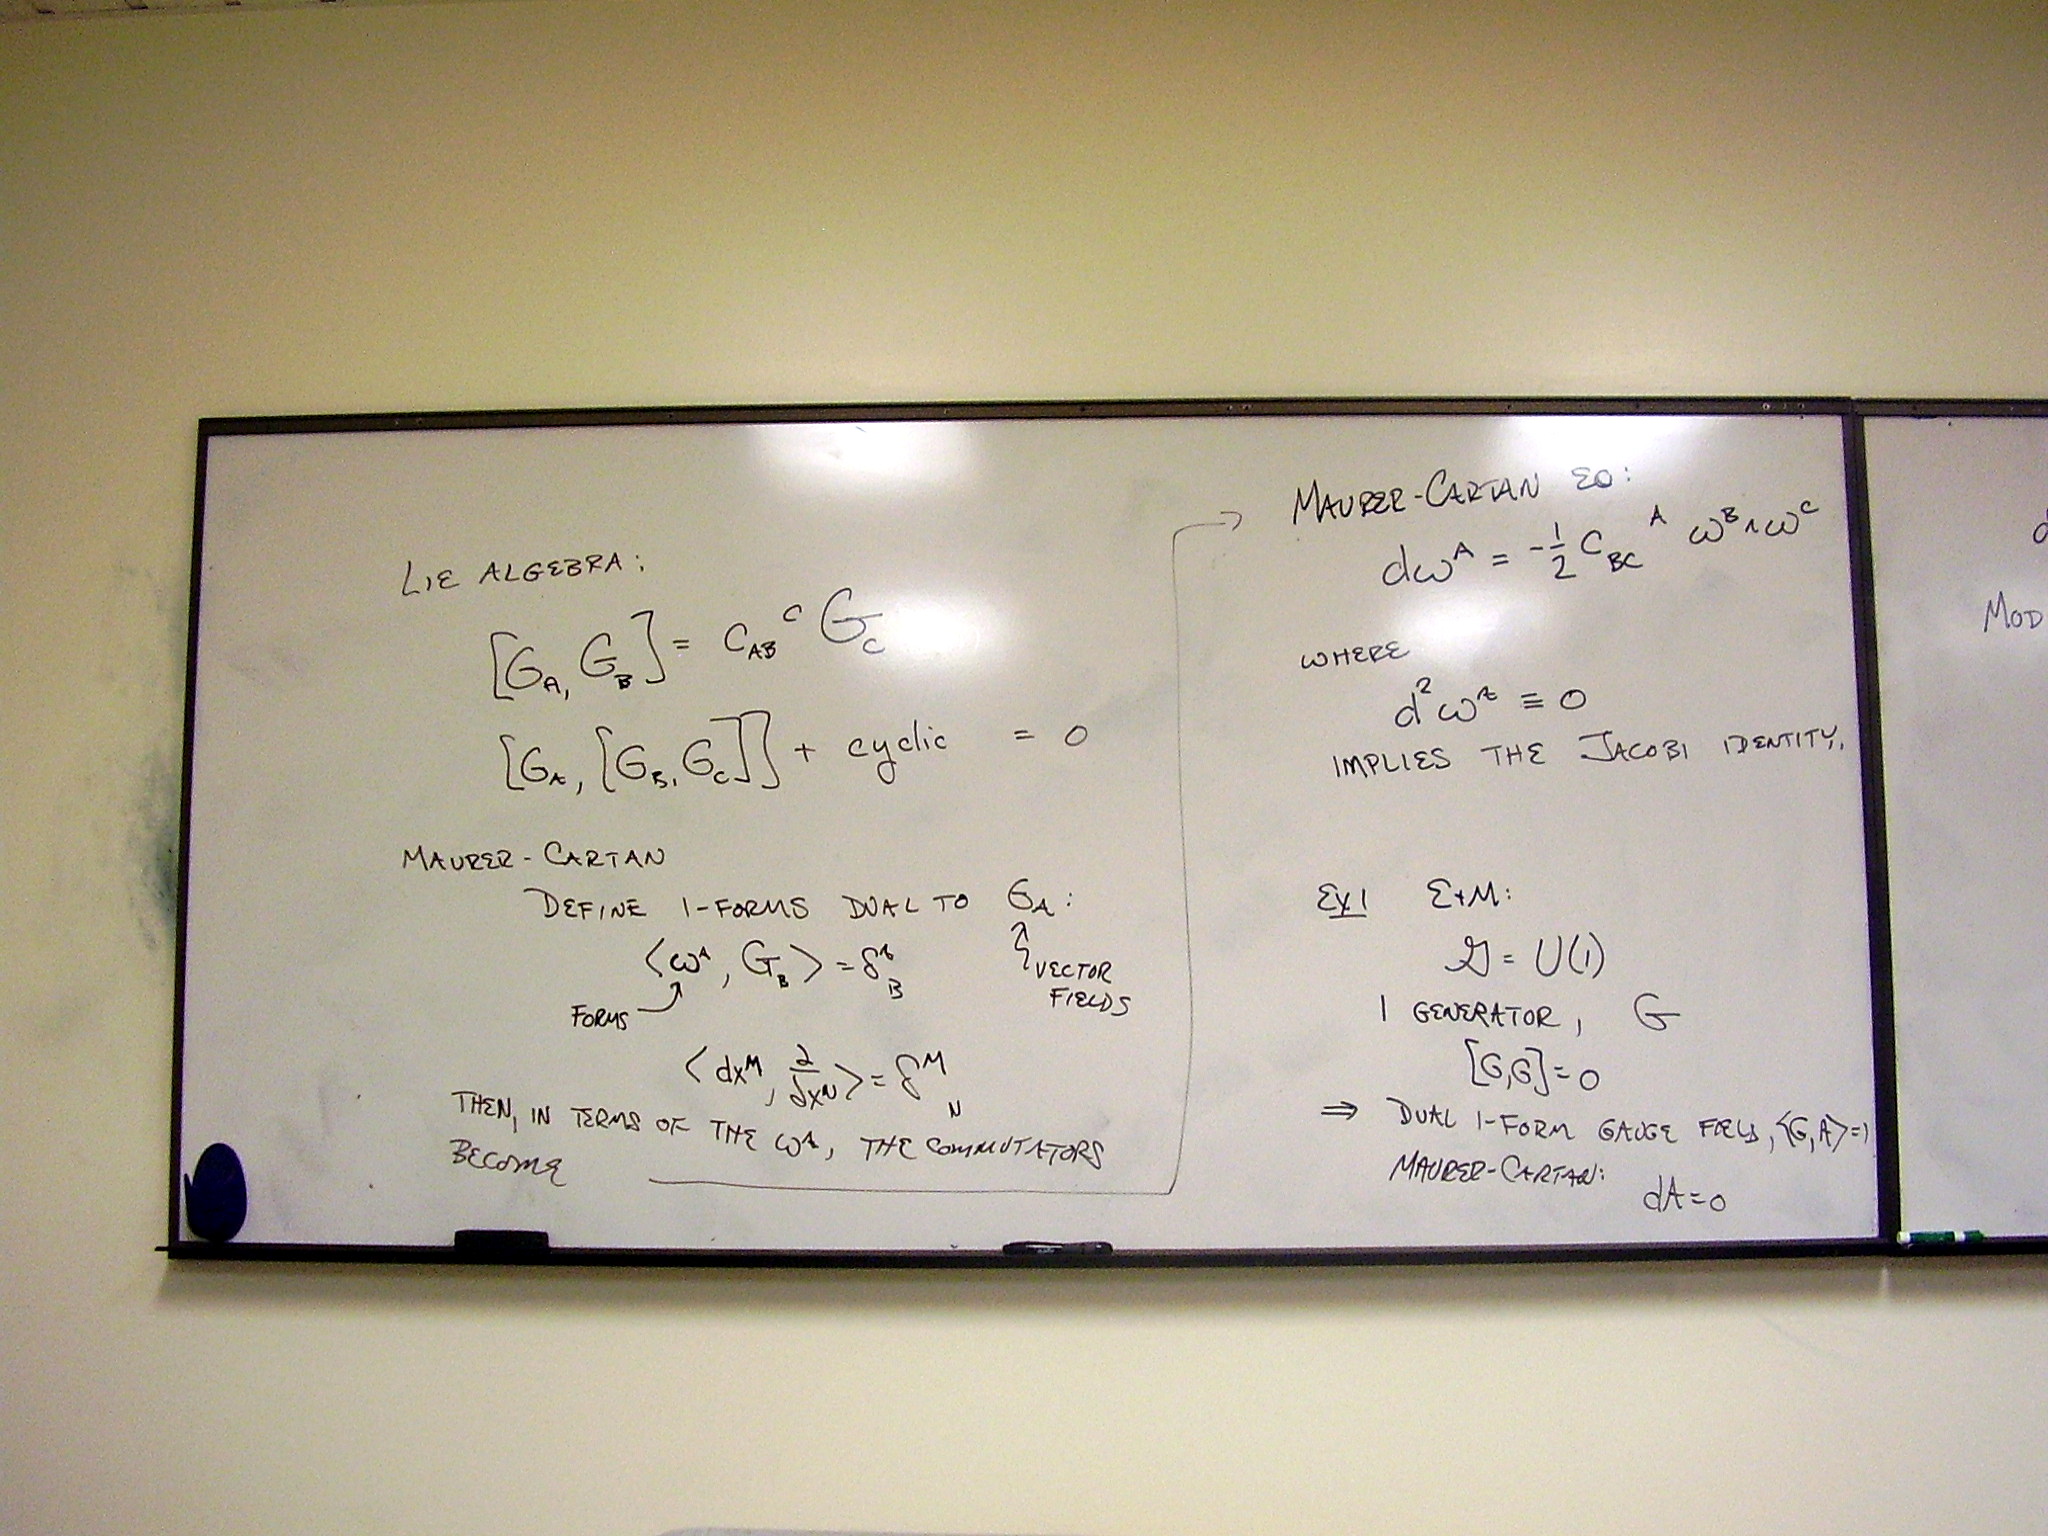 LIE ALGEBRA:
[G_A, G_B] = C_AB^C G_C
[G_A, [G_B, G_C]] + cyclic = 0
MAURER-CARTAN
DEFINE 1-FORMS DUAL TO G_A:
⟨ω^A, G_B⟩ = δ^A_B
VECTOR
FIELDS
FORMS
⟨dx^M, ∂/∂x^N⟩ = δ^M_N
THEN, IN TERMS OF THE ω^A, THE COMMUTATORS
BECOME
MAURER-CARTAN EQ:
dω^A = -1/2 C_BC^A ω^B ∧ ω^C
WHERE
d²ω^A ≡ 0
IMPLIES THE JACOBI IDENTITY.
EX 1 E+M:
𝒢 = U(1)
1 GENERATOR, G
[G,G] = 0
⇒ DUAL 1-FORM GAUGE FIELD, ⟨G,A⟩=1
MAURER-CARTAN:
dA = 0
d
MOD